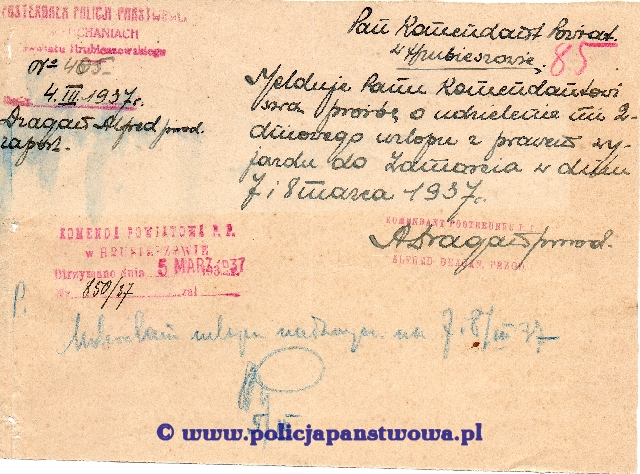 POSTERUNEK POLICJI PAŃSTWOWEJ
w UCHANIACH
powiatu Hrubieszowskiego
№ 465
4.III.1937r.
Dragan Alfred przod.
raport.
Pan Komendant Powiat.
w Hrubieszowie.
85
Melduję Panu Komendantowi
prośbę o udzielenie mi 2-
dniowego urlopu z prawem wy-
jazdu do Zamościa w dniu
7 i 8 marca 1937r.
KOMENDANT POSTERUNKU P.P.
A Dragan przod.
ALFRED DRAGAN, PRZOD.
KOMENDA POWIATOWA P. P.
w HRUBIESZOWIE
Otrzymano dnia 5 MARZ 1937
Nr. 850/37 zał
urlopu na 7. 8/III 37
© www.policjapanstwowa.pl